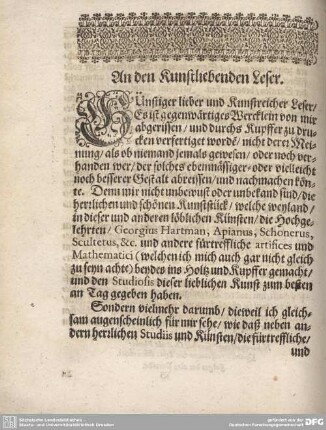 An den Kunstliebenden Leser.
GÜnstiger lieber und Kunstreicher Leser/
Es ist gegenwärtiges Wercklein von mir
abgerissen / und durchs Kupffer zu dru-
cken verfertiget wordē / nicht derer Mei-
nung / als ob niemand jemals gewesen / oder noch ver-
handen wer / der solches ebenmässiger / oder vielleicht
noch besserer Gestalt abreissen / und nachmachen kön-
te. Denn mir nicht unbewust oder unbekand sind / die
herrlichen und schönen Kunststück / welche weyland /
in dieser und anderen löblichen Künsten / die Hochge-
lehrten / Georgius Hartman, Apianus, Schonerus,
Scultetus, &c. und andere fürtreffliche artifices und
Mathematici (welchen ich mich auch gar nicht gleich
zu seyn achte) beydes ins Holtz und Kupffer gemacht /
und den Studiosis dieser lieblichen Kunst zum besten
an Tag gegeben haben.
Sondern vielmehr darumb / dieweil ich gleich-
sam augenscheinlich für mir sehe / wie daß neben an-
dern herrlichen Studiis und Künsten / die fürtreffliche /
und
Sächsische Landesbibliothek -
Staats- und Universitätsbibliothek Dresden
gefördert von der
DFG
Deutschen Forschungsgemeinschaft